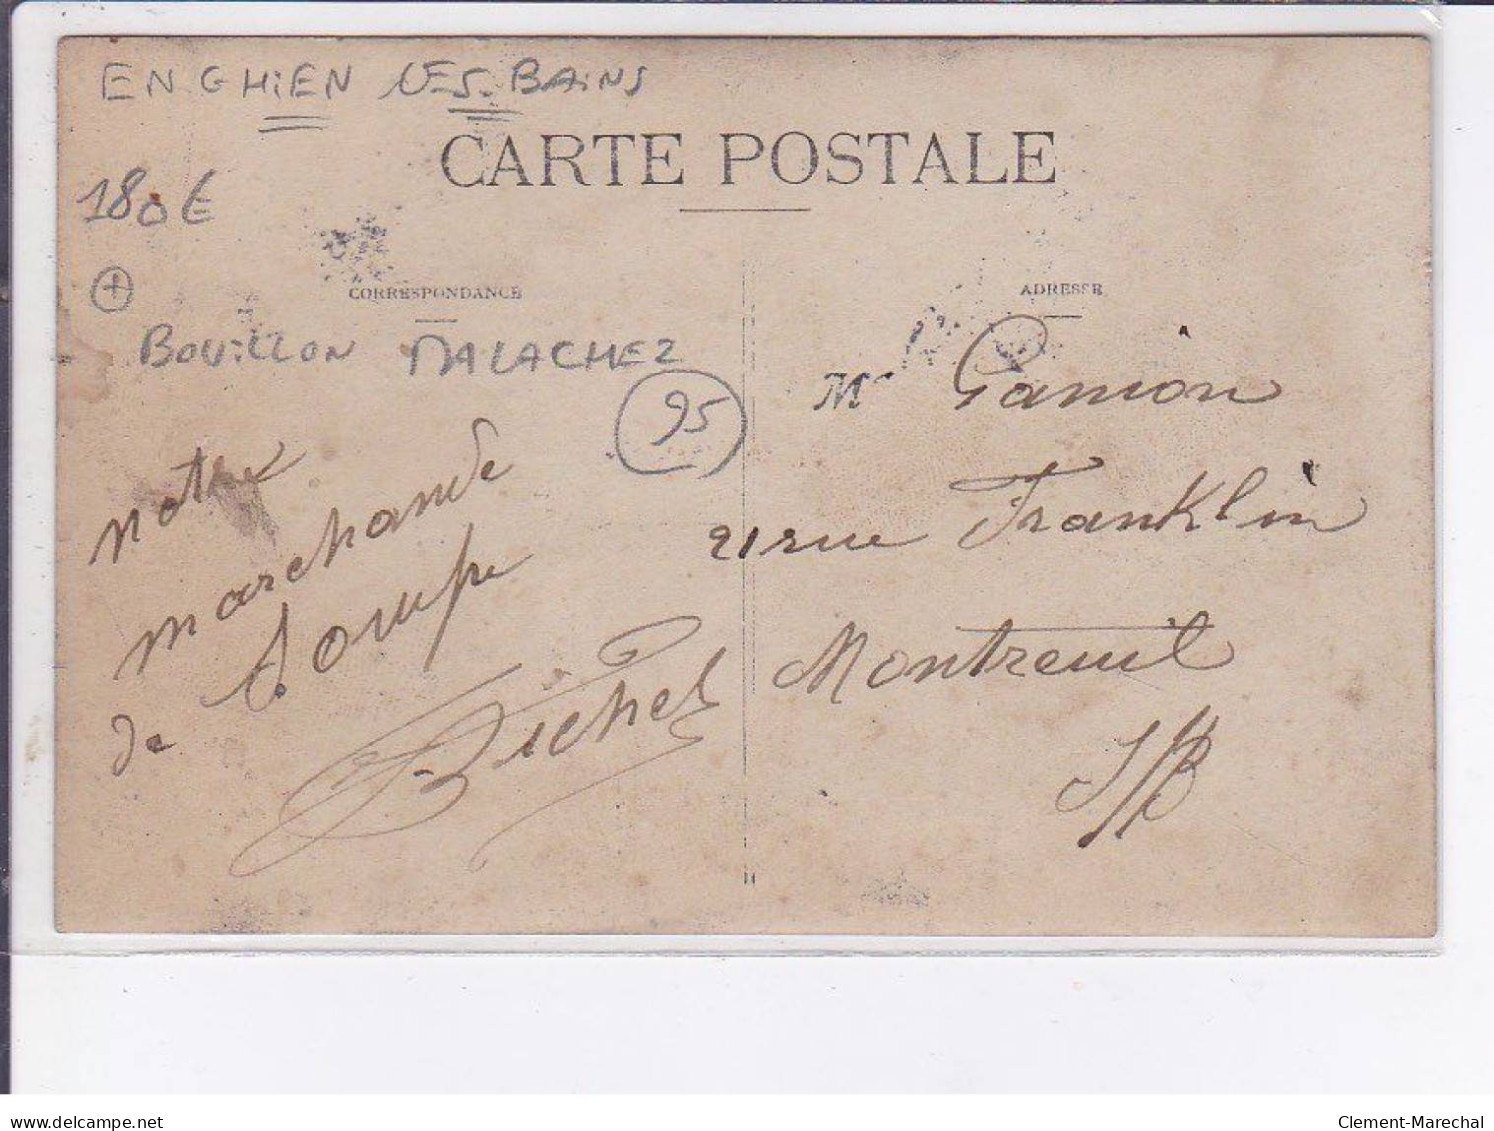 ENGHIEN LES-BAINS
CARTE POSTALE
180€
+
CORRESPONDANCE
ADRESSE
BOUILLON MALACHEZ
95
notre
marchande
de Soupe
Mr Ganion
21 rue Franklin
Montreuil
S/B
delcampe.net
Clement-Marechal